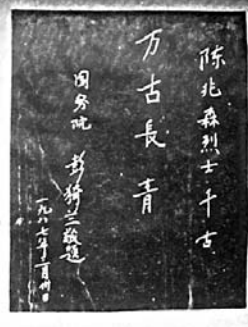 陈兆森烈士千古
万古長青
国务院 彭猗兰敬题
一九八七年一月卅日